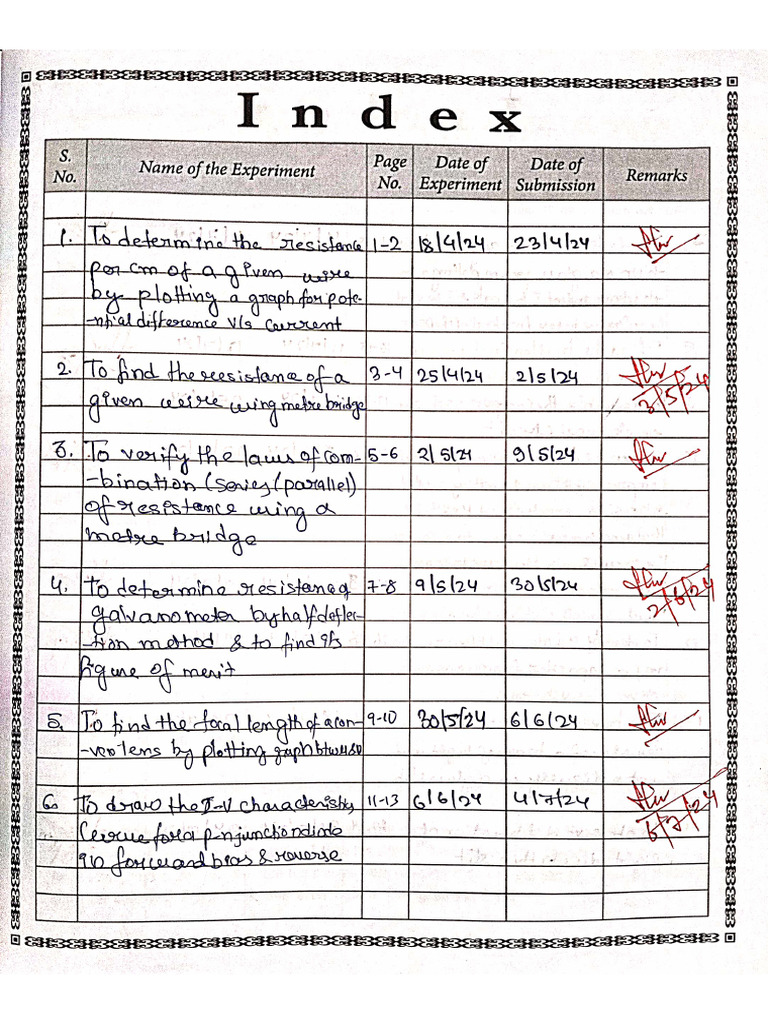 Index
S. No. Name of the Experiment Page No. Date of Experiment Date of Submission Remarks
1. To determine the resistance 1-2 18/4/24 23/4/24
per cm of a given wire
by plotting a graph for pote-
-ntial difference v/s current
2. To find the resistance of a 3-4 25/4/24 2/5/24
given wire using metre bridge 3/5/24
3. To verify the laws of com- 5-6 2/5/24 9/5/24
-bination (series/parallel)
of resistance using a
metre bridge
4. To determine resistance of 7-8 9/5/24 30/5/24
galvanometer by half deflec- 2/6/24
-tion method & to find its
figure of merit
5. To find the focal length of a con- 9-10 30/5/24 6/6/24
-vex lens by plotting graph btw u & v
6. To draw the I-V characteristic 11-13 6/6/24 4/7/24
Curve for a p-n junction diode 6/7/24
in forward bias & reverse